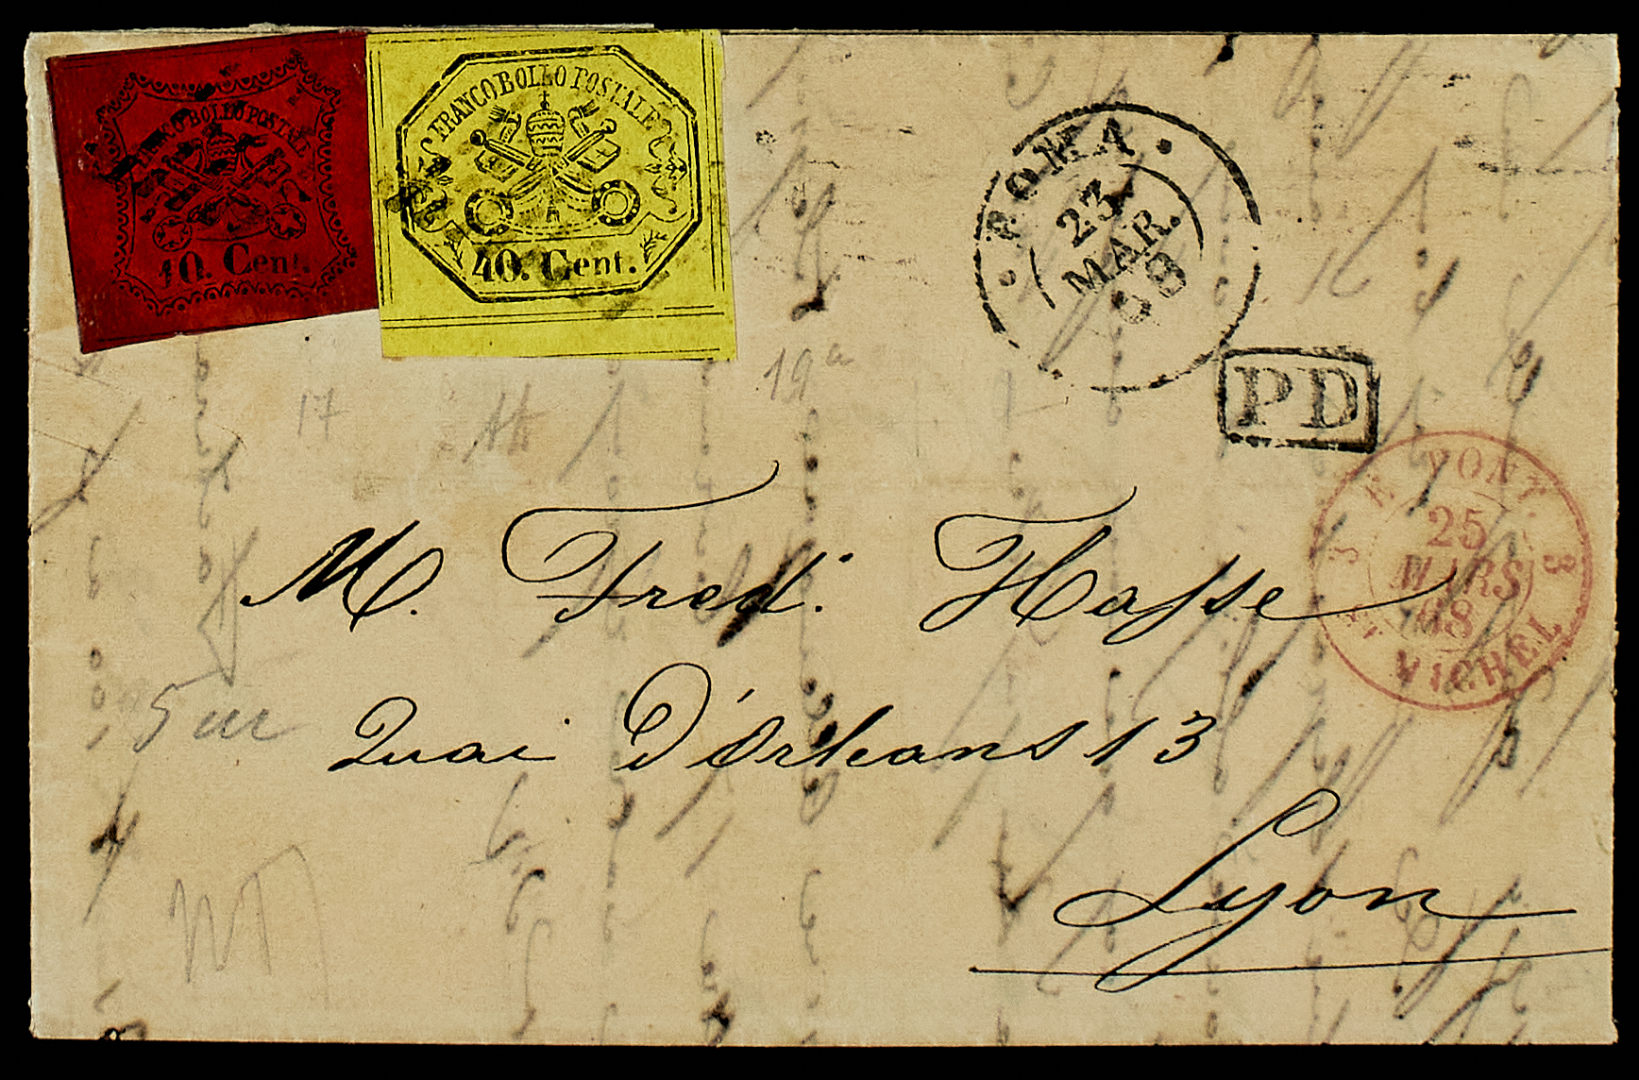 FRANCO BOLLO POSTALE
10. Cent.
FRANCO BOLLO POSTALE
40. Cent.
ROMA
23
MAR.
68
PD
17
19a
25
MARS
68
MICHEL
M. Fred. Hasse
Quai D'Orleans 13
Lyon